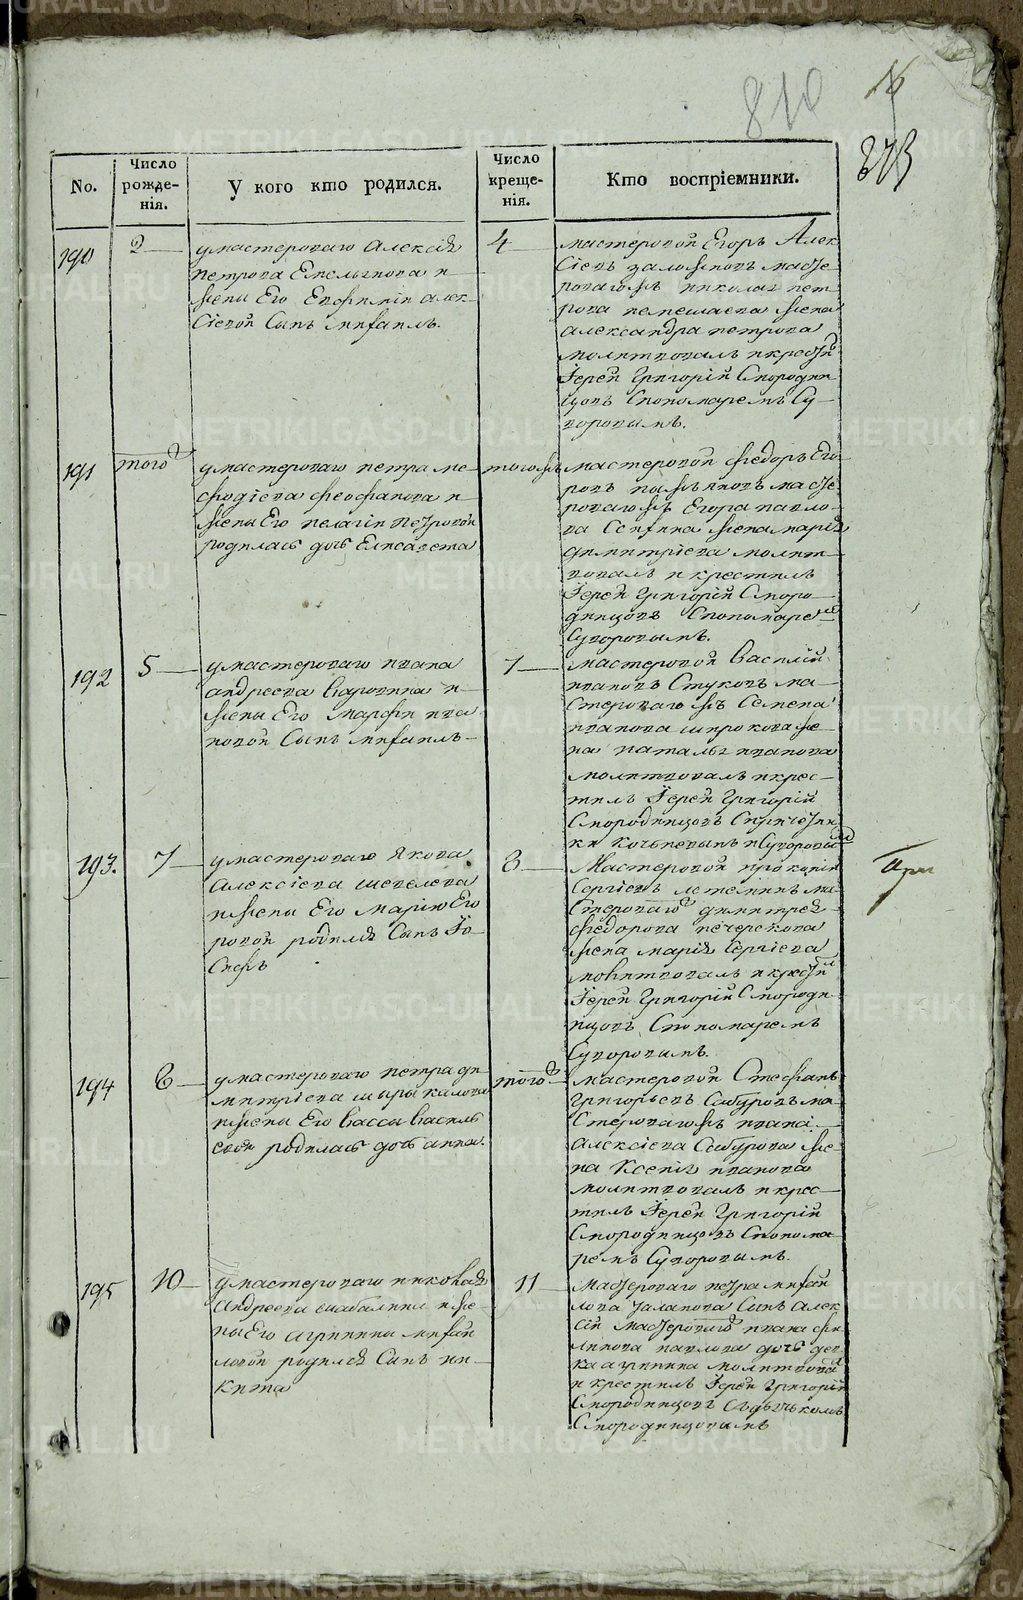 810
16
373
No.
Число рожде-нія.
У кого кто родился.
Число креще-нія.
Кто воспріемники.
190
2
у мастероваго Алексія
Петрова Емельянова и
жены Его Евфиміи Алек
Сіевой Сынъ михаилъ.
4
мастеровой Егоръ Алек
Сіевъ мастероваго
роваго жъ николая пет
рова жена
александра петрова
молитвовалъ и крестил
Іерей Григорій Смородин
цовъ Спономаремъ Су
воровымъ.
191
того
у мастероваго петра ме
фодіева феофанова и
жены Его пелагіи Петровой
родилась дочь Елисавета
тогожъ
мастеровой федоръ Его
ровъ масте
роваго жъ Егора павло
ва жена марія
димитріева молит
вовалъ и крестилъ
Іерей Григорій Сморо
динцовъ Спономарем
Суворовымъ.
192
5
у мастероваго ивана
андреева и
жены Его Марфы ива
новой Сынъ михаилъ
7
мастеровой Василій
ивановъ Стуковъ ма
Стероваго жъ Семена
иванова широкова же
на наталья иванова
молитвовалъ и крес
тилъ Іерей Григорій
Смородинцовъ
и Суворовым
193.
7
у мастероваго Якова
Алексіева шевелева
и жены Его Маріи Его
ровой родился Сынъ Іо
Сифъ
8
Мастеровой прокопій
Сергіевъ ма
Стероваго димитрея
федорова печерскова
жена марія Сергіева
молитвовалъ и крестил
Іерей Григорій Смороди
нцовъ Спономаремъ
Суворовымъ.
194
8
у мастероваго петра ди
митріева
и жены Его Вассы Василь
евой родилась дочь анна.
того
мастеровой Стефанъ
Григорьевъ Сабуровъ ма
Стероваго жъ ивана
Алексіева Сабурова же
на Ксенія иванова
молитвовалъ и крес
тилъ Іерей Григорій
Смородинцовъ Спонома
ремъ Суворовымъ.
195
10
у мастероваго николая
Андреева шабалина и же
ны Его агрипины михай
ловой родился Сынъ ни
кита
11
Мастероваго петра михай
лова Сынъ алек
сій Мастероваго ивана фи
липова павлова дочь дев
ка агрипина молитвовал
и крестилъ Іерей Григорій
Смородинцовъ Съдьячкомъ
Смородинцовымъ